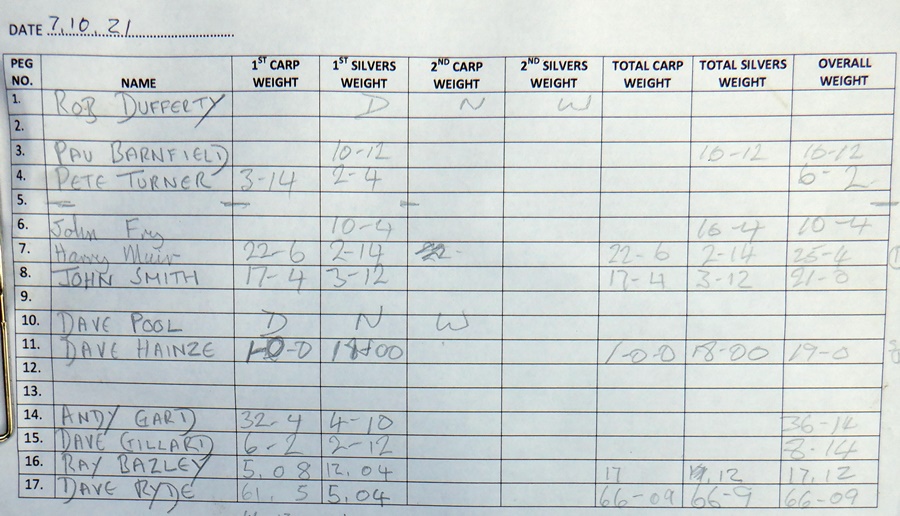 DATE 7.10.21
PEG NO. NAME 1ST CARP WEIGHT 1ST SILVERS WEIGHT 2ND CARP WEIGHT 2ND SILVERS WEIGHT TOTAL CARP WEIGHT TOTAL SILVERS WEIGHT OVERALL WEIGHT
1. ROB DUFFERTY D N W
2.
3. PAU BARNFIELD 10-12 10-12 10-12
4. PETE TURNER 3-14 2-4 6-2
5.
6. John Fry 10-4 10-4 10-4
7. Harry Muir 22-6 2-14 22-6 2-14 25-4
8. JOHN SMITH 17-4 3-12 17-4 3-12 21-0
9.
10. DAVE POOL D N W
11. DAVE HAINZE 1-0-0 18-00 1-0-0 18-00 19-0
12.
13.
14. ANDY GARD 32-4 4-10 36-14
15. DAVE GILLARD 6-2 2-12 8-14
16. RAY BAZLEY 5.08 12.04 17 12 17.12
17. DAVE RYDE 61.5 5.04 66-09 66-9 66-09